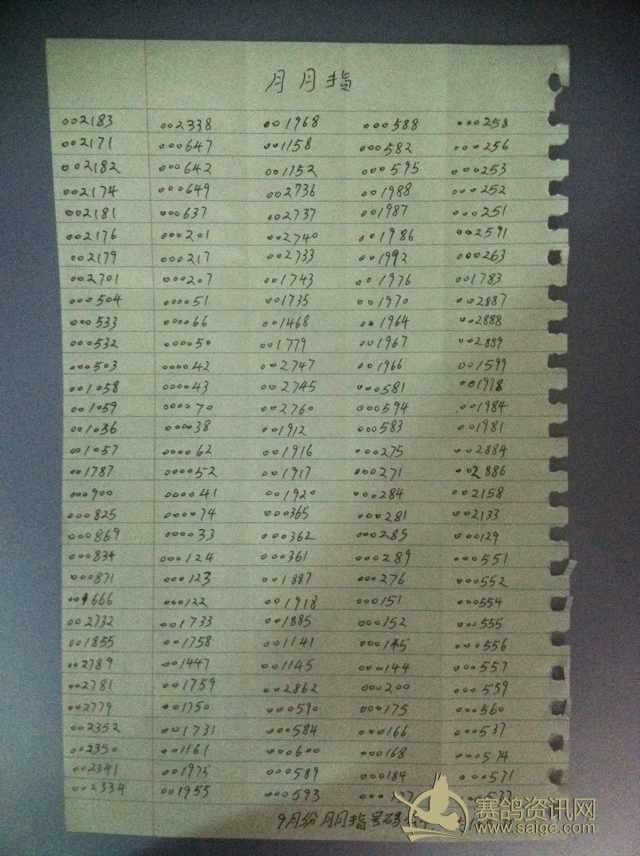 月月指
002183 002338 001968 000588 000258
002171 000647 001158 000582 000256
002182 000642 001752 000595 000253
002174 000649 002736 001988 000252
002181 000637 002737 001987 000251
002176 000201 002740 001986 002591
002179 000217 002733 001992 000263
002701 000207 001743 001976 001783
000504 000051 001735 001970 002887
000533 000066 001468 001964 002888
000532 000050 001779 001967 002889
000503 000042 002747 001966 001599
001058 000043 002745 000581 001978
001059 000070 002760 000594 001984
001036 000038 001912 000583 001981
001057 000062 001916 000275 002884
001787 000052 001917 000271 002886
000900 000041 001920 000284 002158
000825 000074 000365 000281 002133
000869 000033 000362 000285 000129
000834 000124 000361 000289 000551
000871 000123 001887 000276 000552
001666 000122 001918 000151 000554
002732 001733 001885 000152 000555
001855 001758 001141 000145 000556
002789 001447 001145 000144 000557
002781 001759 002862 000200 000559
002779 001750 000590 000175 000560
002352 001731 000584 000166 000537
002350 001161 000600 000168 000574
002341 001975 000589 000184 000571
002334 001955 000593
9月份月月指号码
赛鸽资讯网
www.saige.com